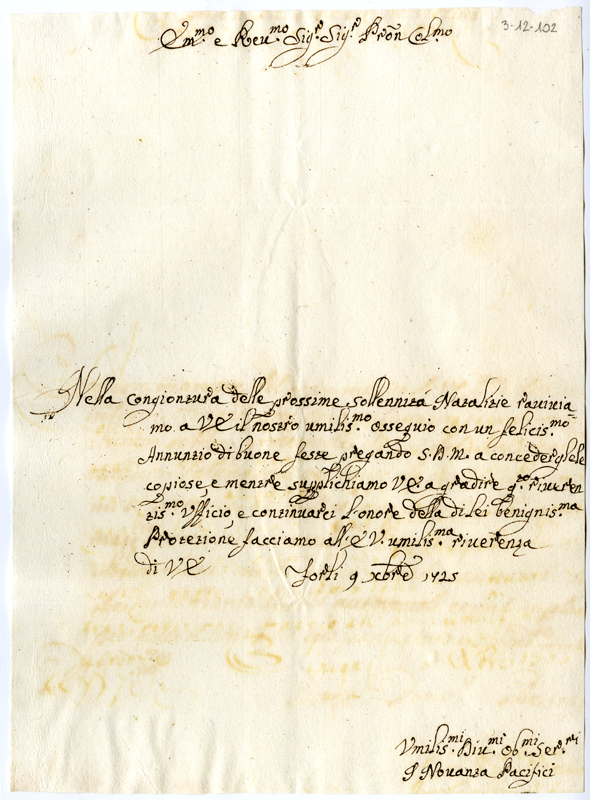 3-12-102
Em.mo e Reu.mo Sig.re Sig.re Pron Col.mo
Nella congiontura delle prossime sollennità Natalizie rauiuia-
mo a VE il nostro umilis.mo ossequio con un felicis.mo
Annunzio di buone feste pregando S.D.M. a concederglele
copiose, e mentre supplichiamo VE a gradire q.to riueren
tis.mo Vfficio, e continuarci l'onore della di lei benignis.ma
Protezione facciamo all'E V. umilis.ma riuerenza
di VE Forlì 9 xbre 1725
Vmilis.mi Diu.mi Ob.mi Ser.ri
I Nouanta Pacifici